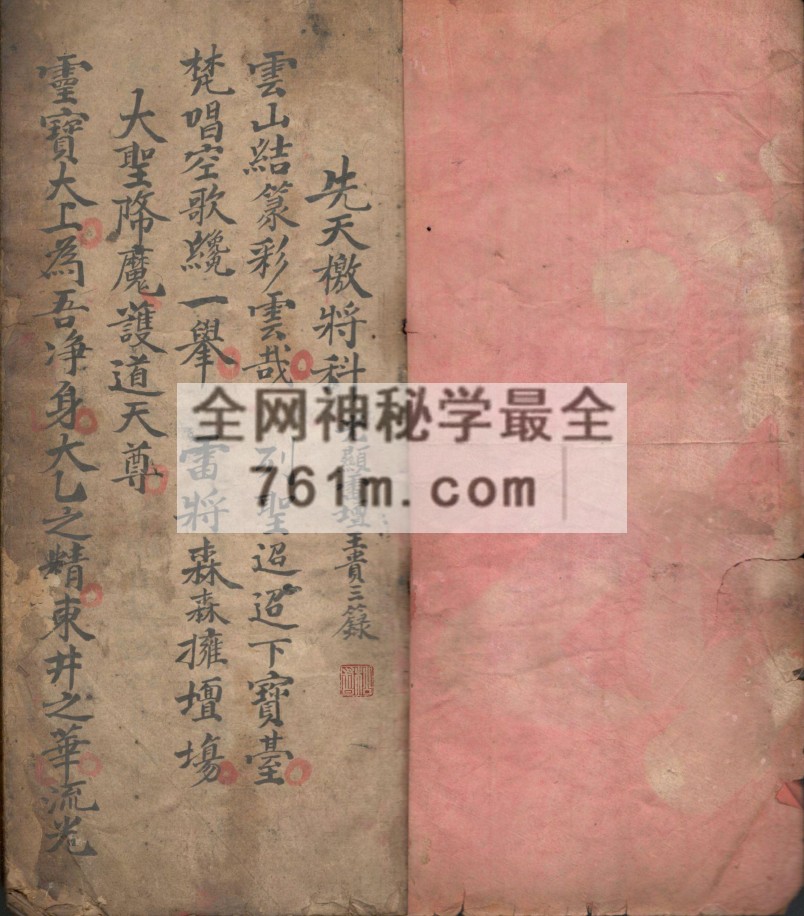 先天檄將科顯雷壇王貴三籙
雲山結篆彩雲哉列聖迢迢下寶臺
梵唱空歌纔一舉雷將森森擁壇場
大聖降魔護道天尊
靈寶大上為吾净身大乙之精東井之華流光
全网神秘学最全
761m.com